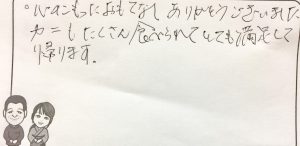 。心のこもったおもてなし ありがとうございました
カニもたくさん食べられてとても満足して
帰ります。